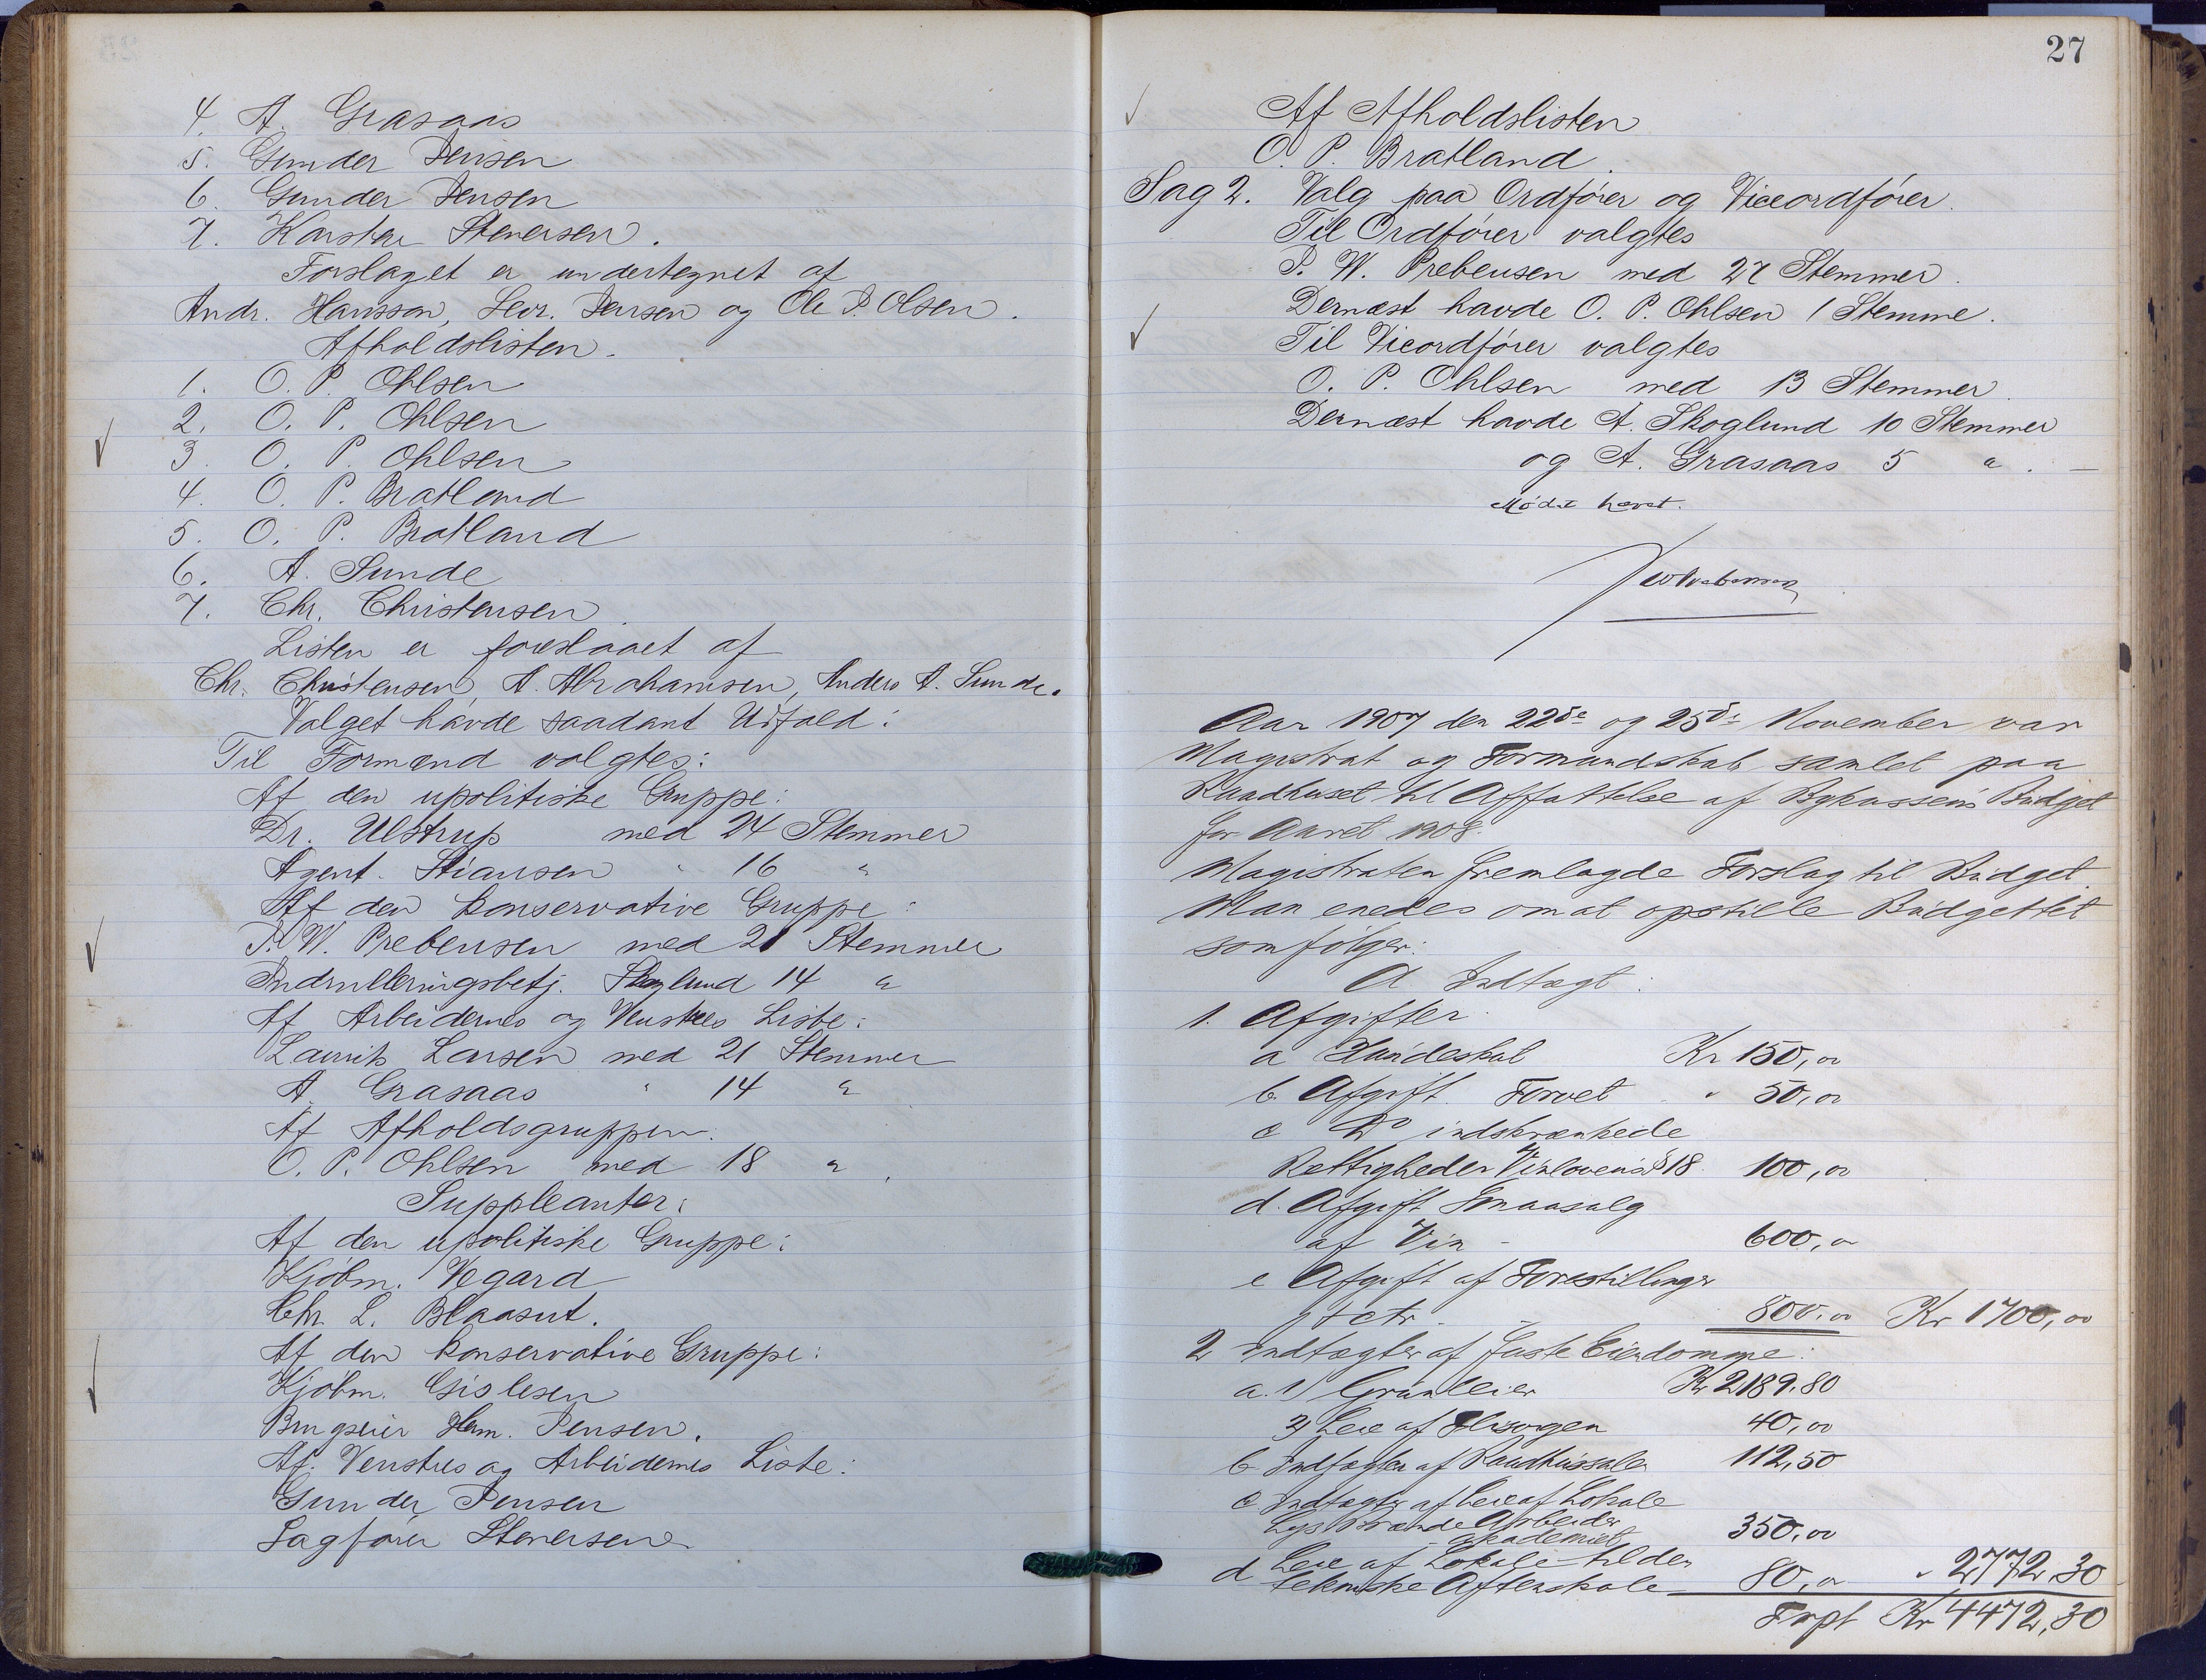 4. A. Grasaas
5. Gunder Jensen
6. Gunder Jensen
7. Karsten Stenersen.
Forslaget er undertegnet af
Andr. Hansson, Sevr. Jensen og Ole P. Olsen.
Afholdslisten.
1. O. P. Ohlsen
2. O. P. Ohlsen
3. O. P. Ohlsen
4. O. P. Bratland
5. O. P. Bratland
6. A. Sunde
7. Chr. Christensen.
Listen er foreslaaet af
Chr. Christensen, A. Abrahamsen, Anders A. Sunde.
Valget havde saadant Udfald:
Til Formænd valgtes:
Af den upolitiske Gruppe:
Dr. Ulstrup med 24 Stemmer
Agent Stiansen " 16 "
Af den konservative Gruppe:
P. W. Prebensen med 21 Stemmer
Indrulleringsbetj. Skoglund 14 "
Af Arbeidernes og Venstres Liste:
Laurits Larsen med 21 Stemmer
A. Grasaas " 14 "
Af Afholdsgruppen.
O. P. Ohlsen med 18 ".
Suppleanter:
Af den upolitiske Gruppe:
Kjøbm. Vegard
Chr. L. Blaasut.
Af den konservative Gruppe:
Kjøbm. Gislesen
Brugseier Herm. Jensen.
Af Venstres og Arbeidernes Liste:
Gunder Jensen
Sagfører Stenersen
27
Af Afholdslisten
O. P. Bratland.
Sag 2. Valg paa Ordfører og Viceordfører.
Til Ordfører valgtes
P. W. Prebensen med 27 Stemmer.
Dernæst havde O. P. Ohlsen 1 Stemme.
Til Viceordfører valgtes
O. P. Ohlsen med 13 Stemmer.
Dernæst havde A. Skoglund 10 Stemmer
og A. Grasaas 5 ". —
Mødet hævet.
Aar 1907 den 22de og 25de November var
Magistrat og Formandskab samlet paa
Raadhuset til Affattelse af Bykassens Budget
for Aaret 1908.
Magistraten fremlagde Forslag til Budget.
Man enedes om at opstille Budgettet
som følger:
A Indtægt:
1. Afgifter.
a Hundeskat Kr 150,00
b. Afgift Torvet " 50,00
c Do indskrænkede
Rettigheder Vinlovens § 18. 100,00
d. Afgift Smaasalg
af Vin - 600,00
e Afgift af Forestillinger
etc. - 800,00 Kr 1700,00
2 Indtægter af faste Eiendomme:
a. 1) Grundleier Kr 2189.80
2) Leie af 40,00
b Indtægter af Raadhussalen 112,50
c. Indtægter af Leie af Lokale
Lys Brænde Arbeider
akademiet 350,00
d Leie af Lokale til den
tekniske Aftenskole 80,00 " 2772,30
Trpt Kr 4472,30